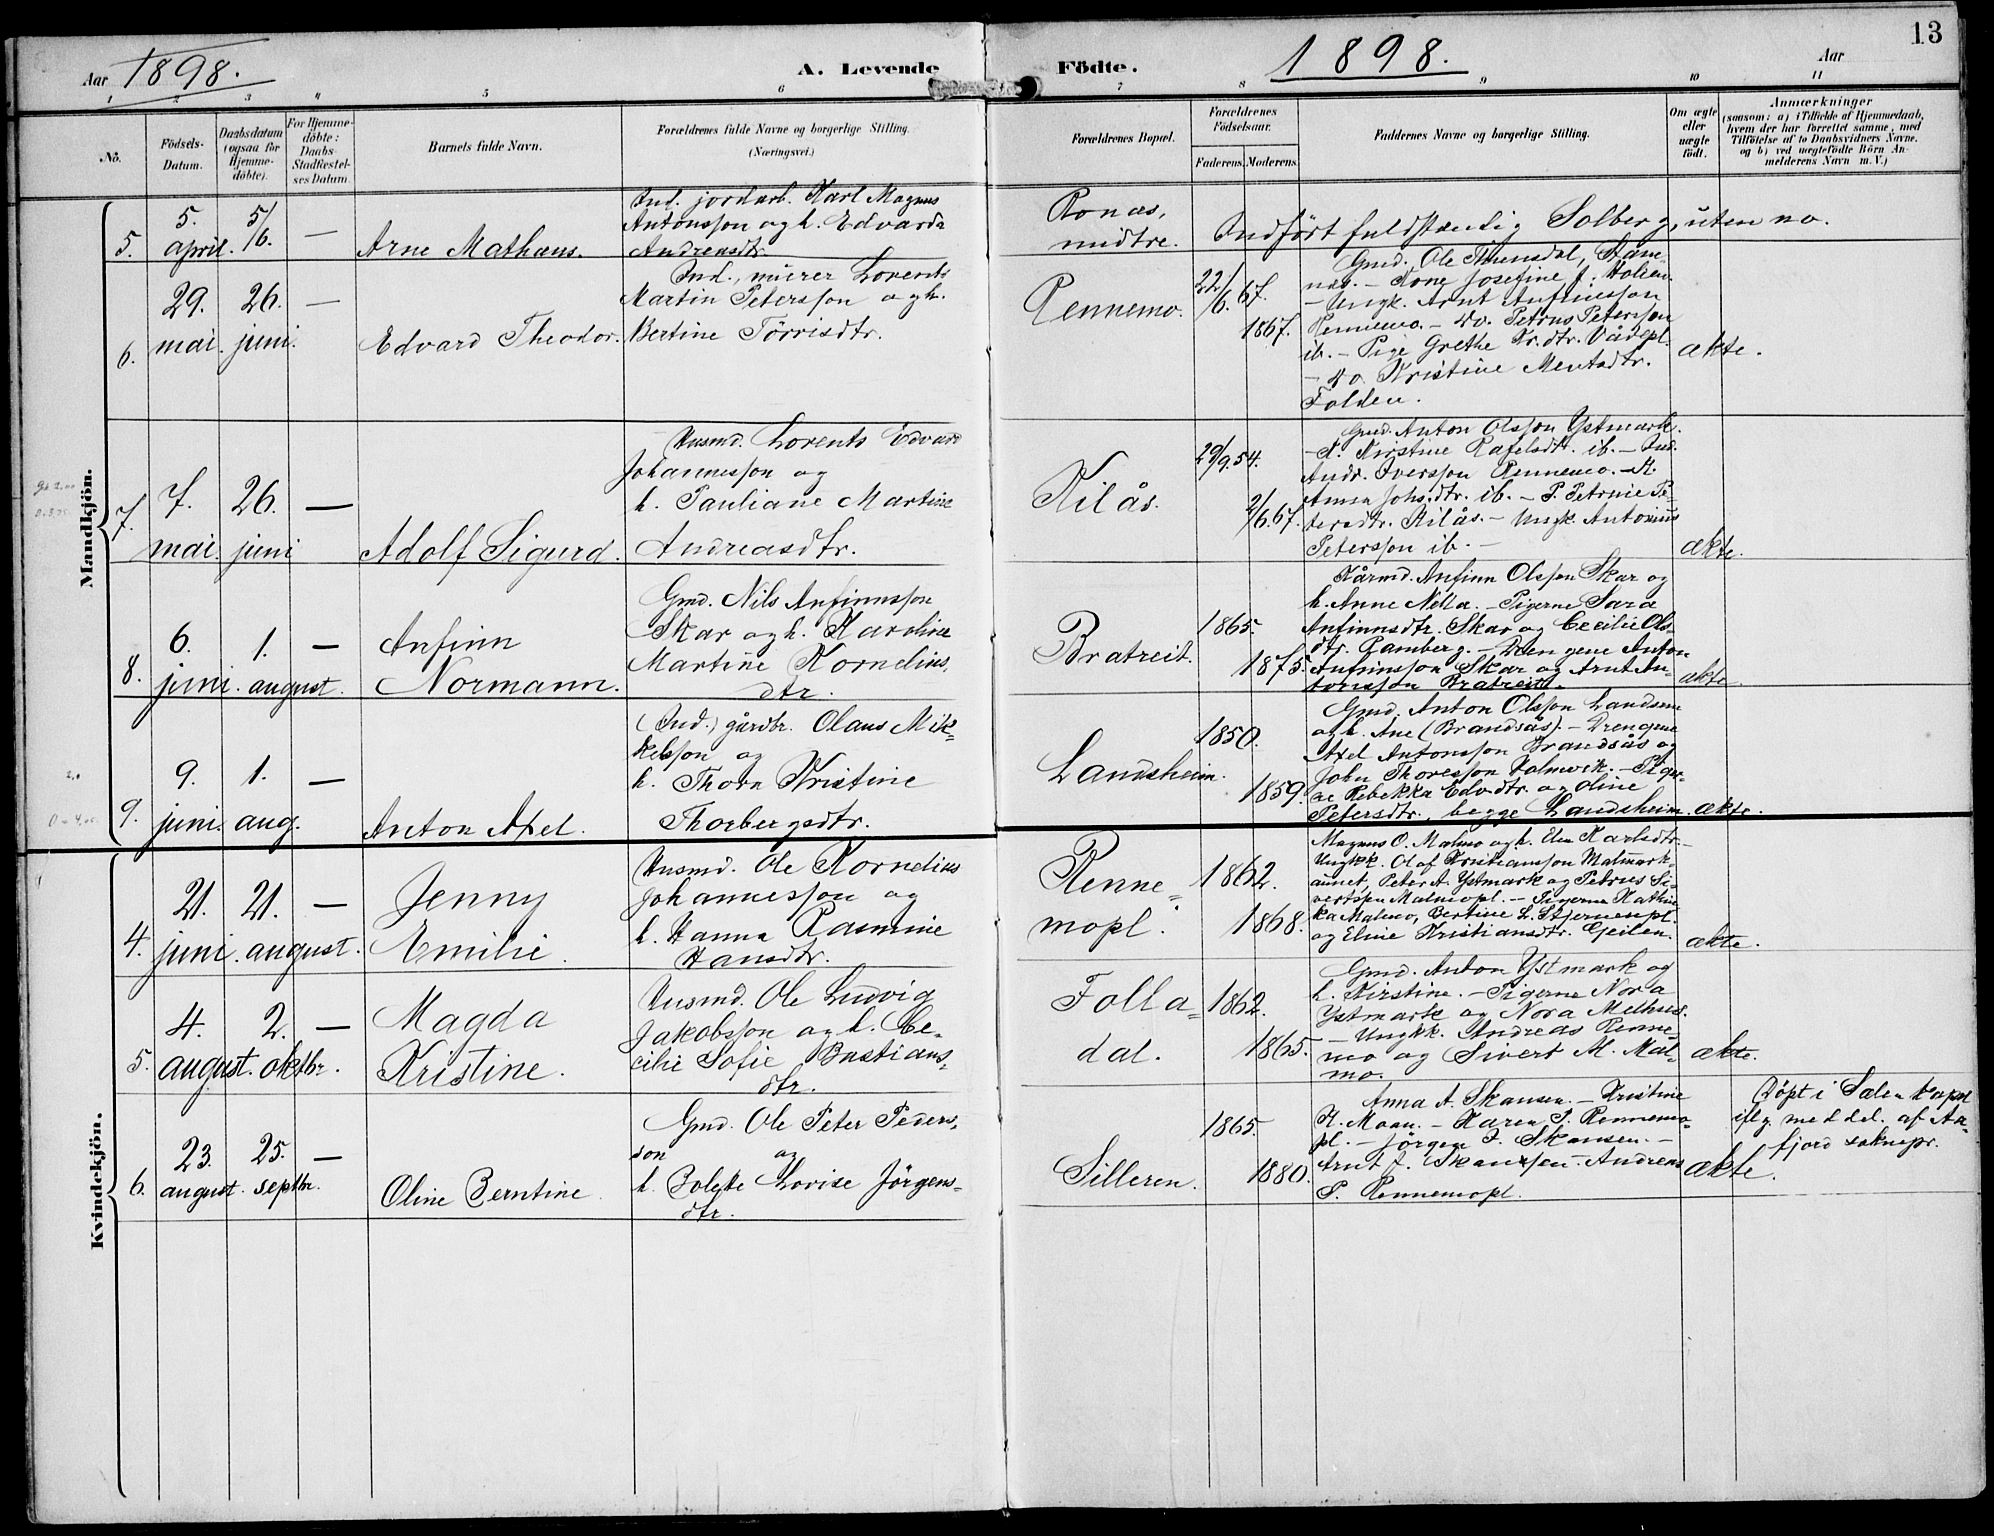 13
Aar 1898.
A. Levende
Födte.
1898.
Aar
1 2 3 4 5 6 7 8 9 10 11
No.
Födsels-
Datum.
Daabsdatum
(ogsaa for
Hjemme-
döbte).
For Hjemme-
döbte:
Daabs-
Stadfæstel-
ses Datum
Barnets fulde Navn.
Forældrenes fulde Navne og borgerlige Stilling.
(Næringsvei.)
Forældrenes Bopæl.
Forældrenes
Födselsaar.
Faderens. Moderens.
Faddernes Navne og borgerlige Stilling.
Om ægte
eller
uægte
födt.
Anmærkninger
(saasom: a) i Tilfælde af Hjemmedaab,
hvem der har forrettet samme, med
Tilföielse af to Daabsvidners Navne.
og b) ved uægtefödte Börn An-
melderens Navn m. V.)
Mandkjön.
5.
5.
april.
5/6.
—
Arne Mathæus.
Ind. jordarb. Karl Magnus
Antonsson og h. Edvarda
Andreasdtr.
Ronæs,
midtre.
Indført fuldstændig Solberg, uten no.
6.
29.
mai.
26.
juni.
—
Edvard Theodor.
Ind., murer Lorents
Martin Petersson og h.
Bertine Törrisdtr.
Rennemo.
22/6. 67.
1867.
Gmd. Ole Thunsdal, Stam-
næs. – Kone Josefine J. Holien.
– Ungk. Arnt Anfinnsson
Rennemo. – do. Petrus Petersson
ib. – Pige Grethe Kr.dtr. Vådepl.
– do. Kristine Mentsdtr.
Folden.
ækte.
7.
7.
mai.
26.
juni
—
Adolf Sigurd.
Husmd. Lorents Edvard
Johannesson og
h. Pauliane Martine
Andreasdtr.
Kilås.
29/9. 54.
2/6. 67.
Gmd. Anton Olsson Ystmark.
– P. Kirstine Rafelsdtr. ib. – Ind.
Andr. Iversson Rennemo. – K.
Anna Johs.dtr. ib. – P. Petrnie Pe-
tersdtr. Kilås. – Ungk. Antonius
Petersson ib. –
ækte.
8.
6.
juni.
1.
august.
—
Anfinn
Normann.
Gmd. Nils Anfinnsson
Skar og h. Karoline
Martine Kornelius-
dtr.
Bratreit.
1865.
1875.
Kårmd. Anfinn Olsson Skar og
h. Anne Nilla. – Pigerne Sara
Anfinnsdtr. Skar og Cecilie Ols-
dtr. Ramberg. – Drengene Anton
Anfinnsson Skar og Arnt An-
tonsson Bratreit.
ækte.
9.
9.
juni.
1.
aug.
—
Anton Axel.
(Ind.) gårdbr. Olaus Mik-
kelsson og
h. Thora Kristine
Thorbergsdtr.
Landsheim.
1850.
1859.
Gmd. Anton Olsson Landsem
og h. Ane (Brandsås). – Drengene
Axel Antonsson Brandsås og
John Thoresson Holmvik. – Piger-
ne Rebekka Edv.dtr. og Oline
Petersdtr., begge Landsheim.
ækte.
Kvindekjön.
4.
21.
juni.
21.
august.
—
Jenny
Emilie.
Husmd. Ole Kornelius
Johannesson og
h. Hanna Rasmine
Hansdtr.
Renne-
mopl.
1862.
1868.
Magnus O. Malmo og h. Elen Karlsdtr. –
Ungkk. Olaf Kristiansson Malmark-
aunet, Peter A. Ystmark og Petrus Si-
vertsen Malmopl. – Pigerne Kathin-
ka Malmo, Bertine L. Stjernenpl.
og Eline Kristiansdtr. Geilen.
ækte.
5.
4.
august.
2.
oktbr.
—
Magda
Kristine.
Husmd. Ole Ludvig
Jakobsson og h. Ce-
cilie Sofie Bastians-
dtr.
Folla-
dal.
1862.
1865.
Gmd. Anton Ystmark og
h. Kirstine. – Pigerne Nora
Ystmark og Nora Melhus.
– Ungkk. Andreas Renne-
mo og Sivert M. Mal-
mo.
ækte.
6.
23.
august.
25.
septbr.
—
Oline Berntine.
Gmd. Ole Peter Peders-
son og
h. Bolette Lovise Jörgens-
dtr.
Silleren.
1865.
1880.
Anna A. Skansen. – Kristine
K. Moan. – Karen P. Rennemo-
pl. – Jörgen J. Skansen. –
Arnt J. Skansen. – Andreas
P. Rennemopl.
ækte.
Döpt i Sæla kapel
iflg. meddel. af Aa-
fjord soknepr.